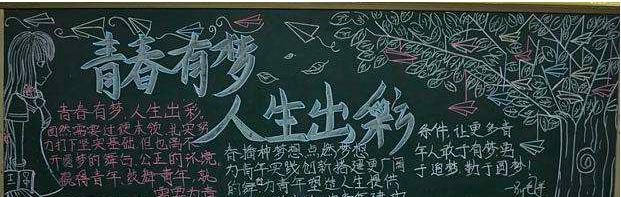 青春有梦
人生出彩
青春有梦，人生出彩。
固然需要过硬本领，扎实努
力打下坚实基础但也离不
开圆梦的舞台、公正的环境
赢得青年、鼓舞青年，就
需要为青
春播种梦想点燃梦想
为青年实践创新搭建更广阔
的舞台为青年塑造人生提供
条件，让更多青
年人敢于有梦勇
于追梦勤于圆梦！